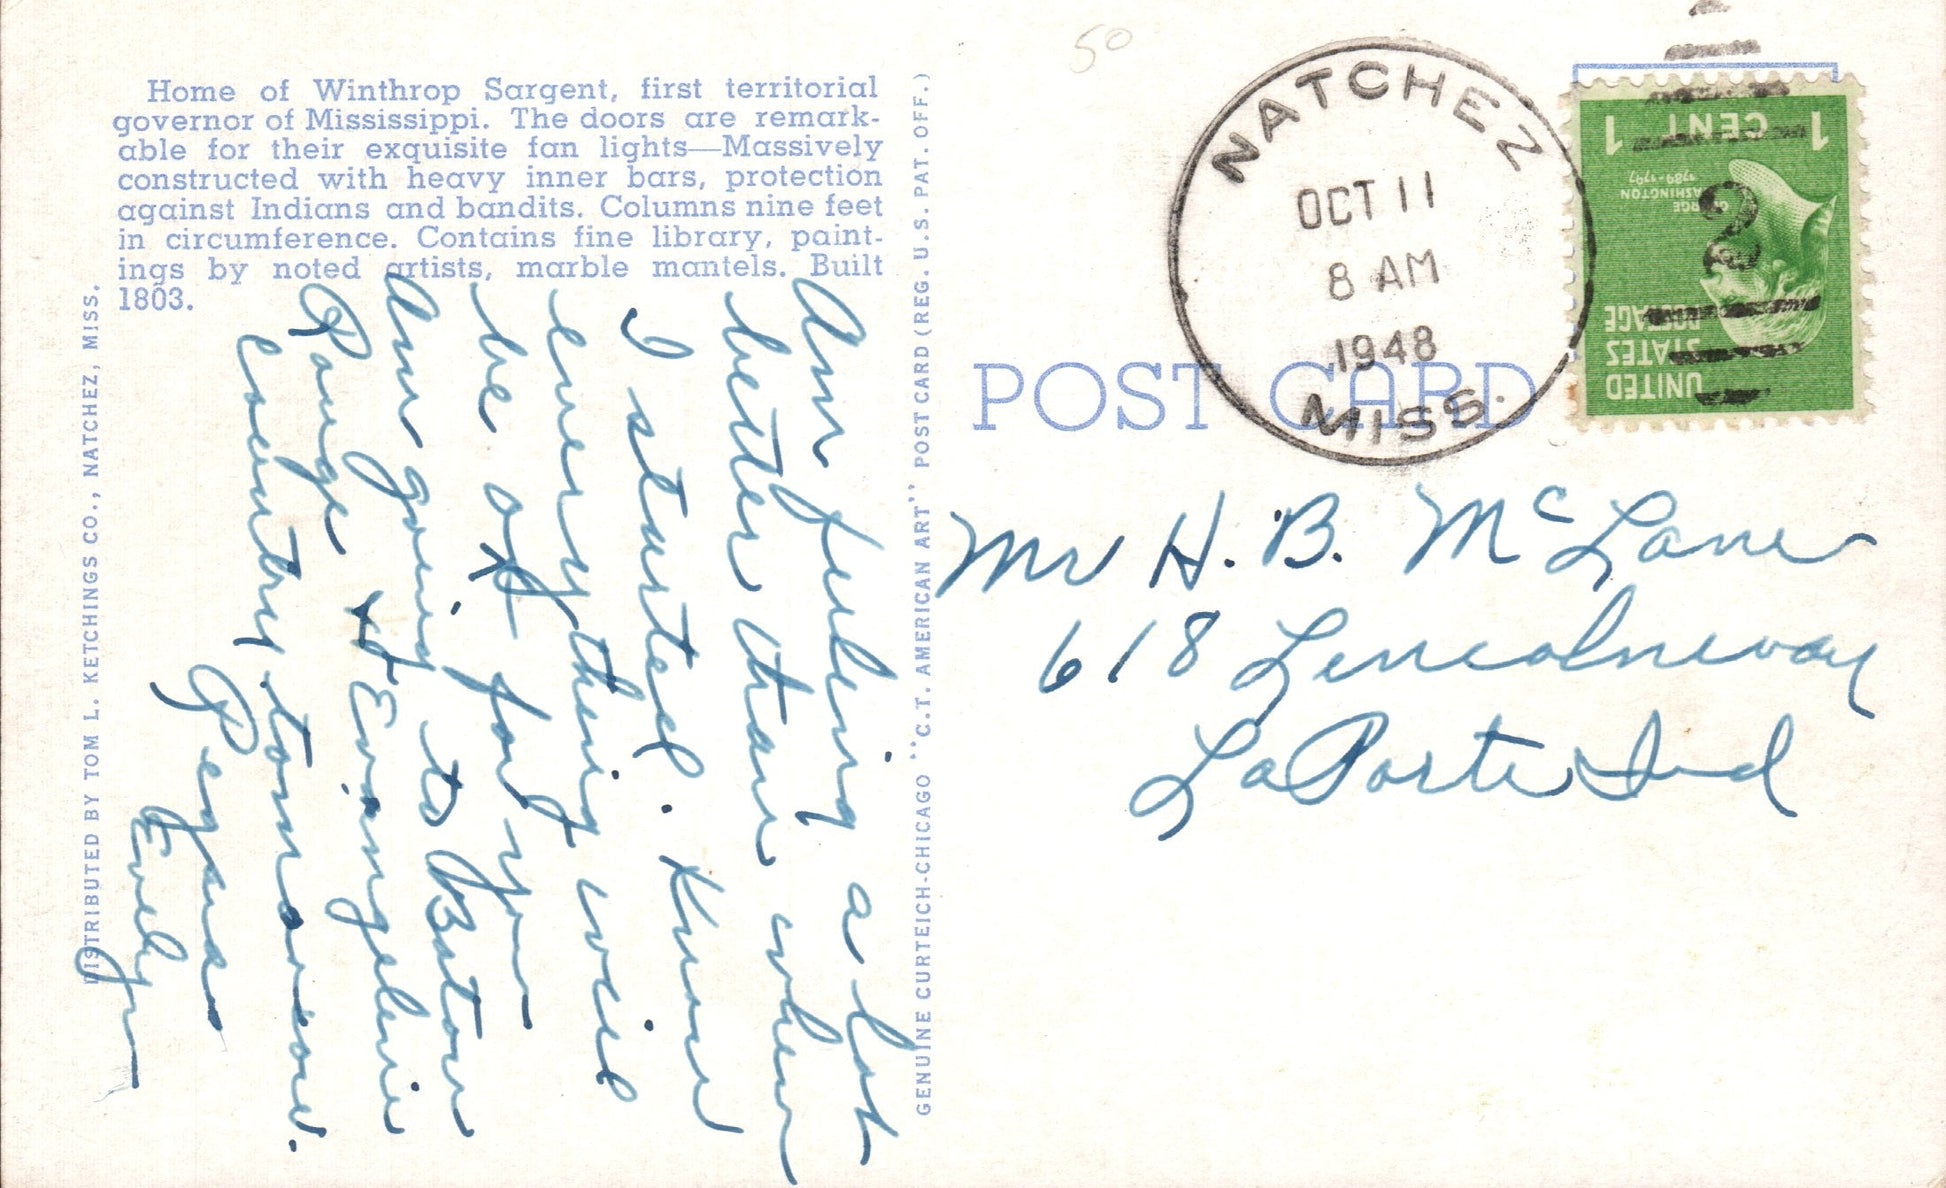 Home of Winthrop Sargent, first territorial
governor of Mississippi. The doors are remark-
able for their exquisite fan lights—Massively
constructed with heavy inner bars, protection
against Indians and bandits. Columns nine feet
in circumference. Contains fine library, paint-
ings by noted artists, marble mantels. Built
1803.
Am feeling a lot
better than when
I started. Know
everything will
be ok for you
Am going to Baton
Rouge & Evangeline
country tomorrow.
Evelyn
DISTRIBUTED BY TOM L. KETCHINGS CO., NATCHEZ, MISS.
GENUINE CURTEICH-CHICAGO "C.T. AMERICAN ART" POST CARD (REG. U.S. PAT. OFF.)
50
POST CARD
NATCHEZ
OCT 11
8 AM
1948
MISS.
2
UNITED
STATES
POSTAGE
GEORGE
WASHINGTON
1789-1797
1 CENT 1
Mr H. B. McLane
618 Lincolnway
LaPorte Ind